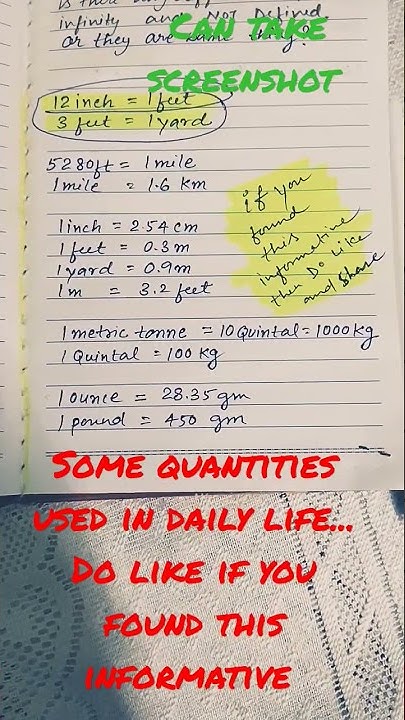 infinity and Not Defined
or they are same thing?
Can take
screenshot
12 inch = 1 feet
3 feet = 1 yard
5280ft = 1 mile
1 mile = 1.6 Km
1 inch = 2.54 cm
1 feet = 0.3m
1 yard = 0.9m
1 m = 3.2 feet
if you
found
this
informative
then Do like
and Share
1 metric tonne = 10 Quintal = 1000 kg
1 Quintal = 100 kg
1 ounce = 28.35 gm
1 pound = 450 gm
Some quantities
used in daily life...
Do like if you
found this
informative